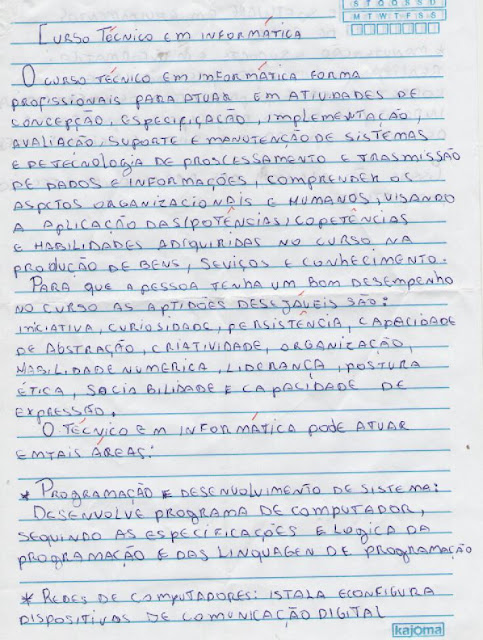 S T Q Q S S D
M T W T F S S
CURSO TÉCNICO EM INFORMÁTICA
O CURSO TÉCNICO EM INFORMÁTICA FORMA
PROFISSIONAIS PARA ATUAR EM ATIVIDADES DE
CONCEPÇÃO, ESPECIFICAÇÃO, IMPLEMENTAÇÃO,
AVALIAÇÃO, SUPORTE E MANUTENÇÃO DE SISTEMAS
E DE TECNOLOGIA DE PROSCESSAMENTO E TRASMISSÃO
DE DADOS E INFORMAÇÕES, COMPRENDER OS
ASPCTOS ORGANIZACIONAIS E HUMANOS, VISANDO
A APLICAÇÃO DAS (POTÊNCIAS) COPETÊNCIAS
E HABILIDADES ADIQUIRIDAS NO CURSO NA
PRODUÇÃO DE BENS, SEVIÇOS E CONHECIMENTO.
PARA QUE A PESSOA TENHA UM BOM DESEMPENHO
NO CURSO AS APTIDÕES DESEJÁVEIS SÃO:
INICIATIVA, CURIOSIDADE, PERSISTÊNCIA, CAPACIDADE
DE ABSTRAÇÃO, CRIATIVIDADE, ORGANIZAÇÃO,
HABILIDADE NUMERICA, LIDERANÇA, POSTURA
ÉTICA, SOCIABILIDADE E CAPACIDADE DE
EXPRESSÃO.
O TÉCNICO EM INFORMÁTICA PODE ATUAR
EM TAIS ÁREAS:
* PROGRAMAÇÃO E DESENVOLVIMENTO DE SISTEMA:
DESENVOLVE PROGRAMA DE COMPUTADOR,
SEQUINDO AS ESPECIFICAÇÕES E LOGICA DA
PROGRAMAÇÃO E DAS LINQUAGEN DE PROGRAMAÇÃO
* REDES DE COMPUTADORES: ISTALA E CONFIGURA
DISPOSITIVOS DE COMUNICAÇÃO DIGITAL
kajoma